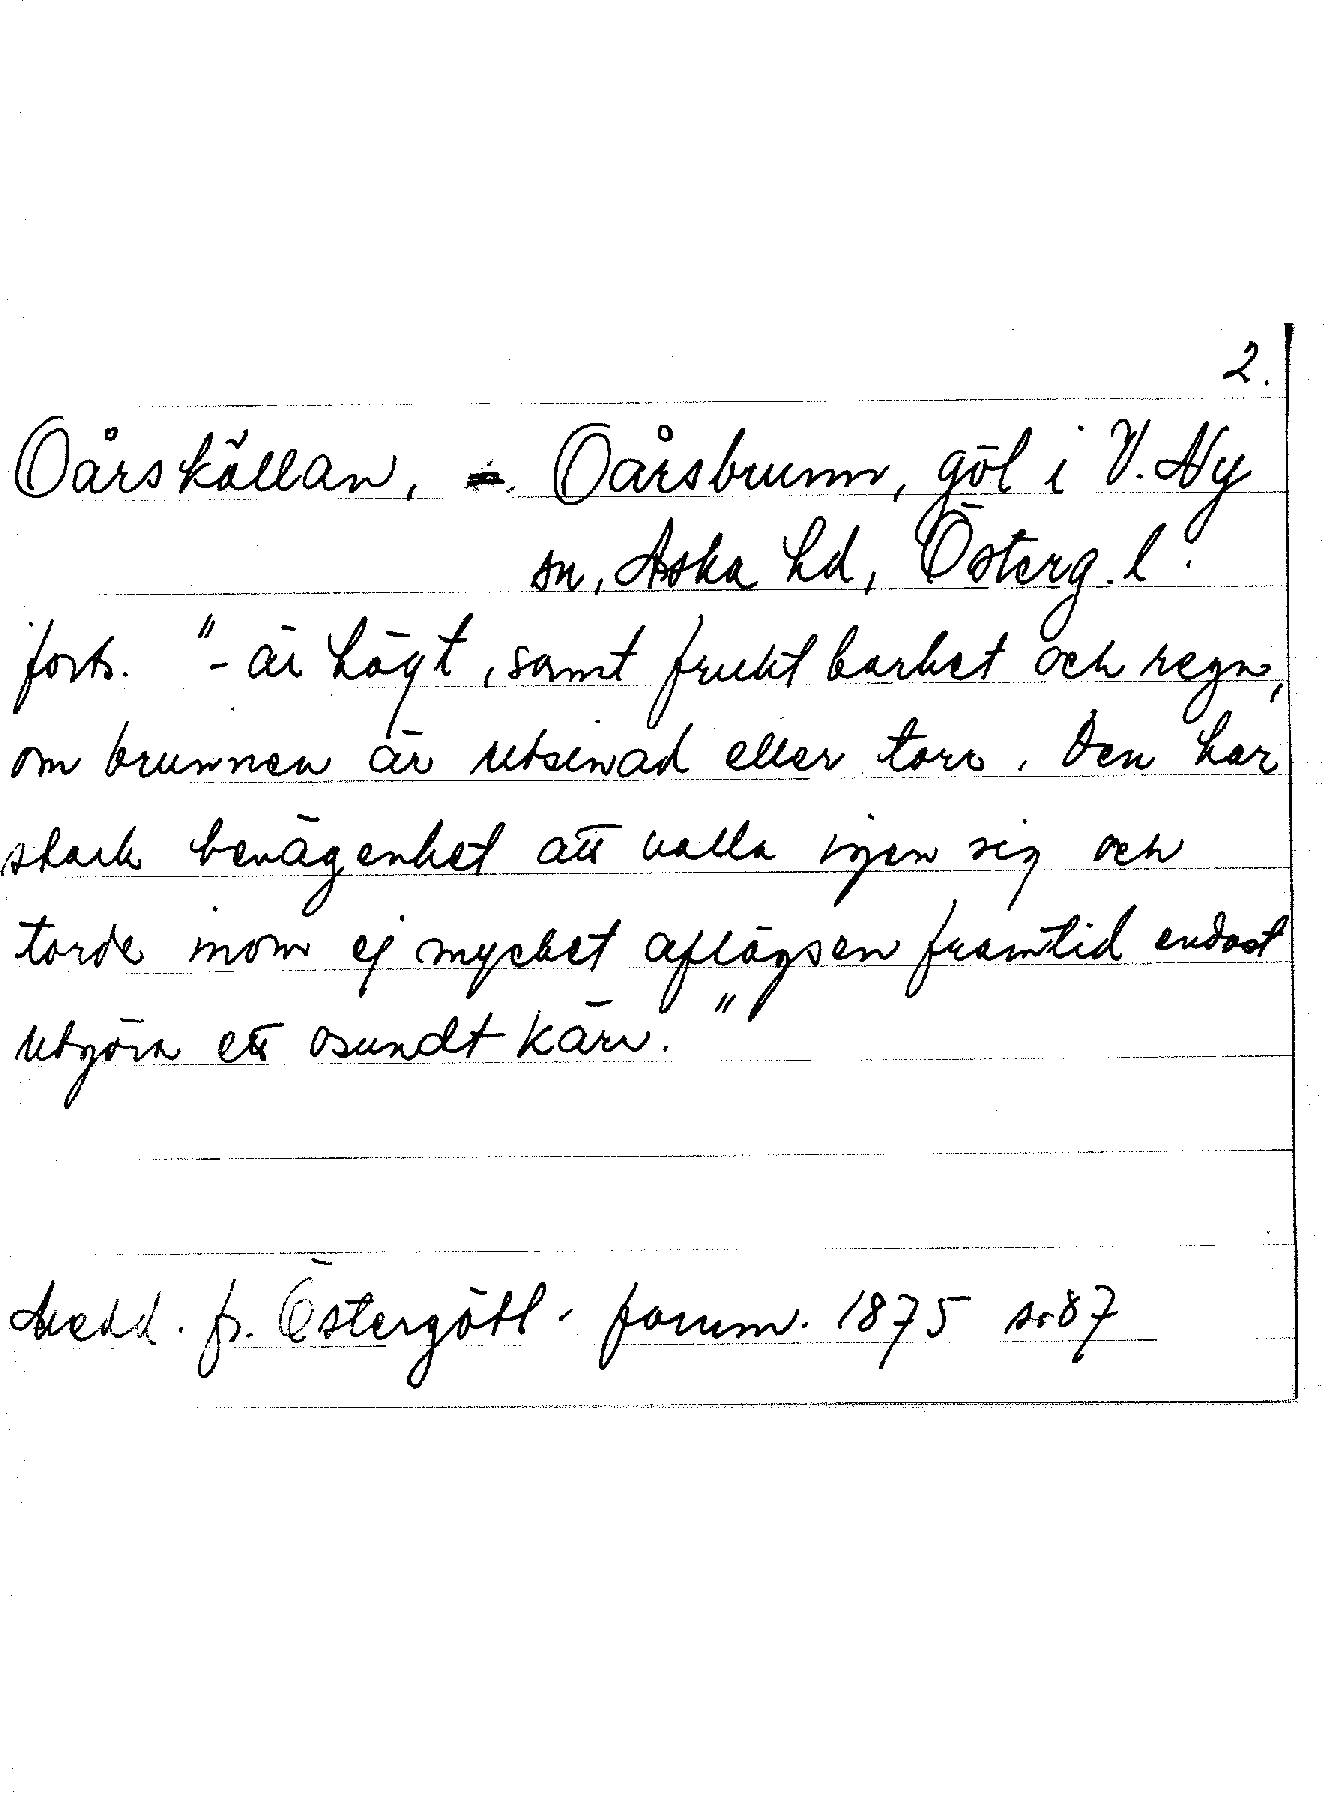 2.
Oårskällan, =. Oårsbrunn, göl i V. Ny
sn, Aska hd, Österg. l.
forts. "- är högt, samt fruktbarhet och regn,
om brunnen är utsinad eller torr. Den har
stark benägenhet att valla igen sig och
torde inom ej mycket aflägsen framtid endast
utgöra ett osundt kärr."
Medd. fr. Östergötl. fornm. 1875 s. 87